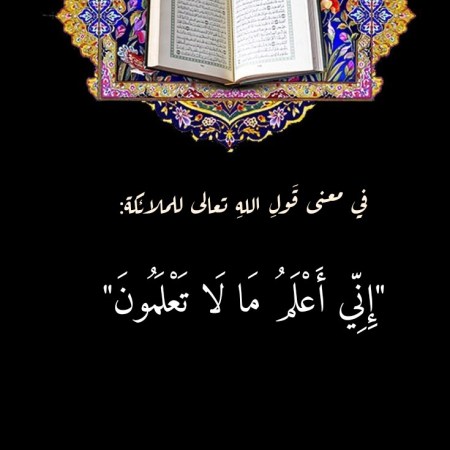 في معنى قَولِ اللهِ تعالى للملائكة:
"إِنِّي أَعْلَمُ مَا لَا تَعْلَمُونَ"